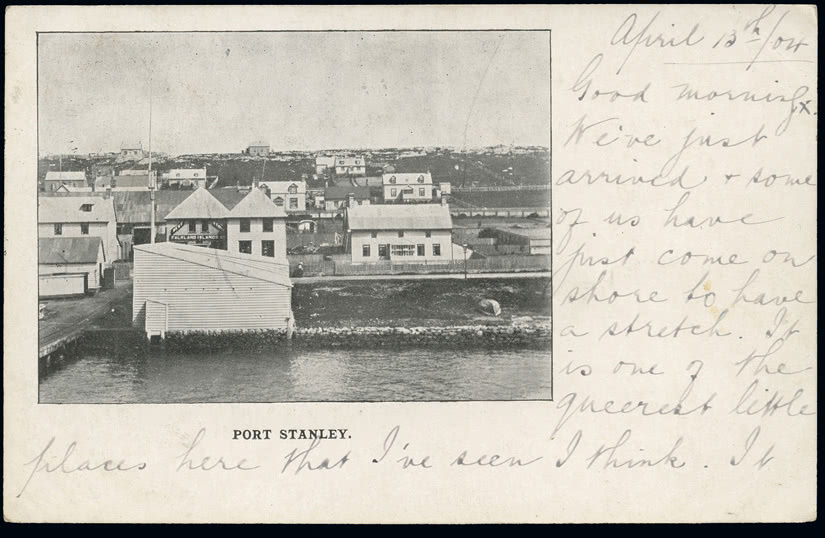 April 13th/04
Good morning x.
We've just
arrived & some
of us have
just come on
shore to have
a stretch. It
is one of the
queerest little
places here that I've seen I think. It
FALKLAND ISLANDS
PORT STANLEY.